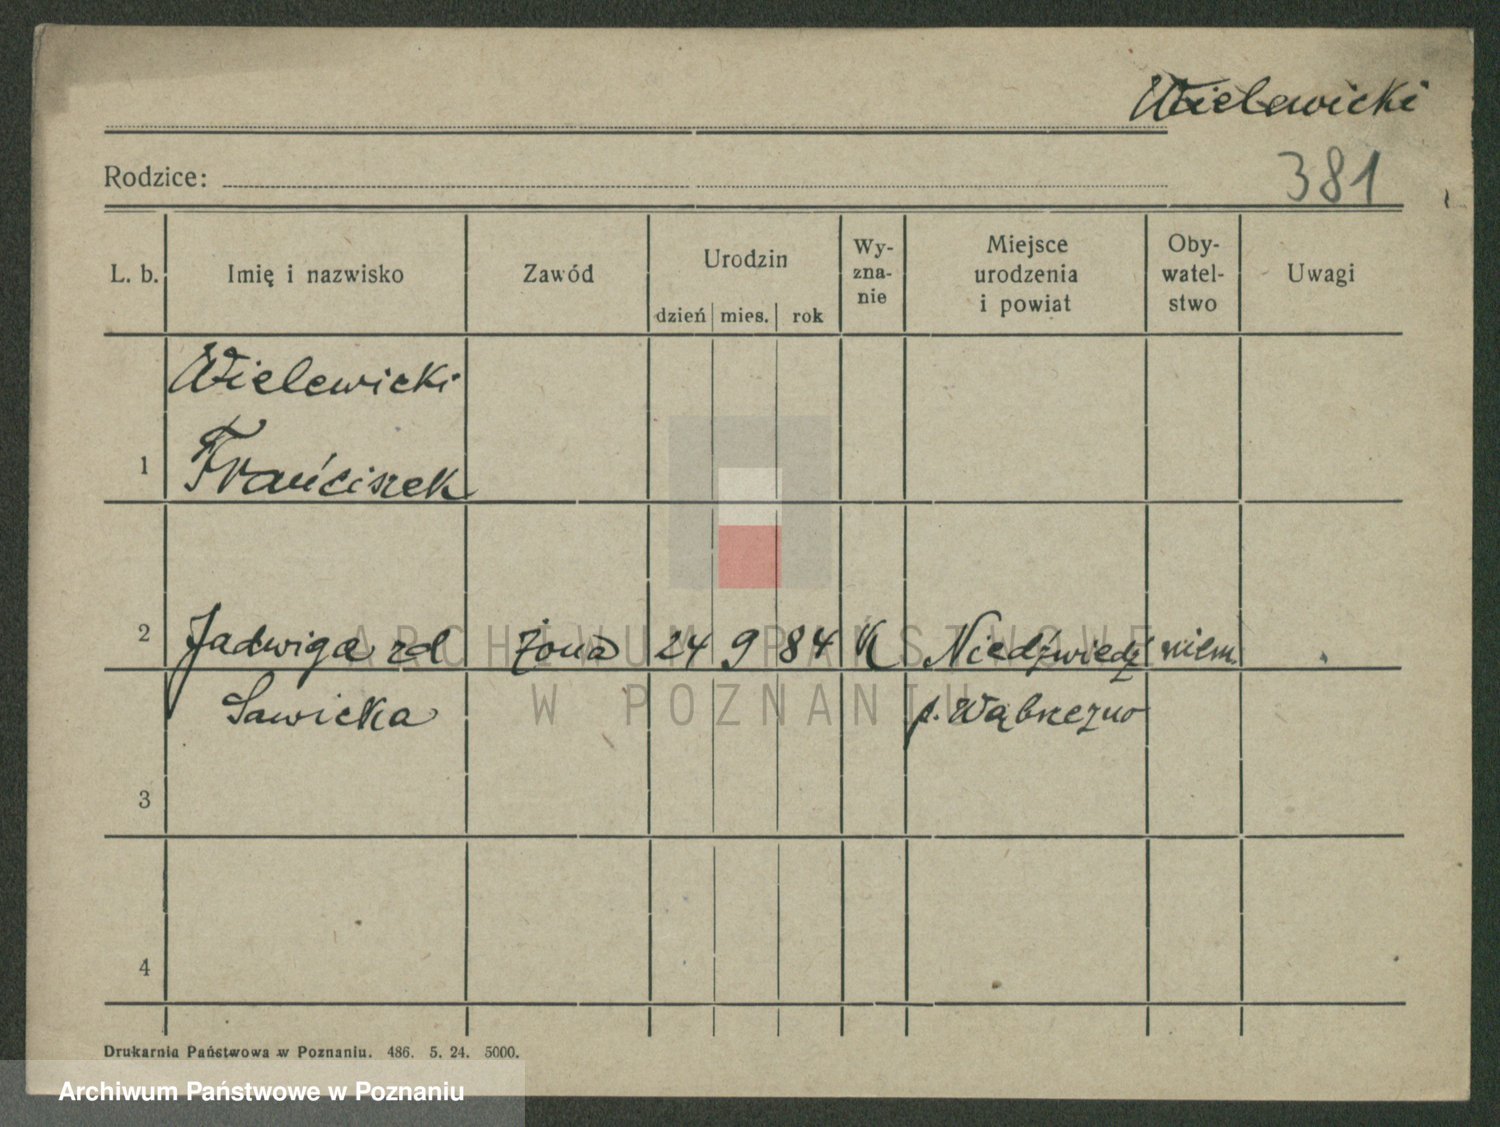 Wielewicki
Rodzice:
381
L. b. Imię i nazwisko Zawód Urodzin dzień mies. rok Wy-zna-nie Miejsce urodzenia i powiat Oby-watel-stwo Uwagi
Wielewicki
1 Franciszek
2 Jadwiga zd żona 24 9 84 K Niedźwiedź niem.
Sawicka p. Wąbrzezno
3
4
Drukarnia Państwowa w Poznaniu. 486. 5. 24. 5000.
ARCHIWUM PAŃSTWOWE
W POZNANIU
Archiwum Państwowe w Poznaniu